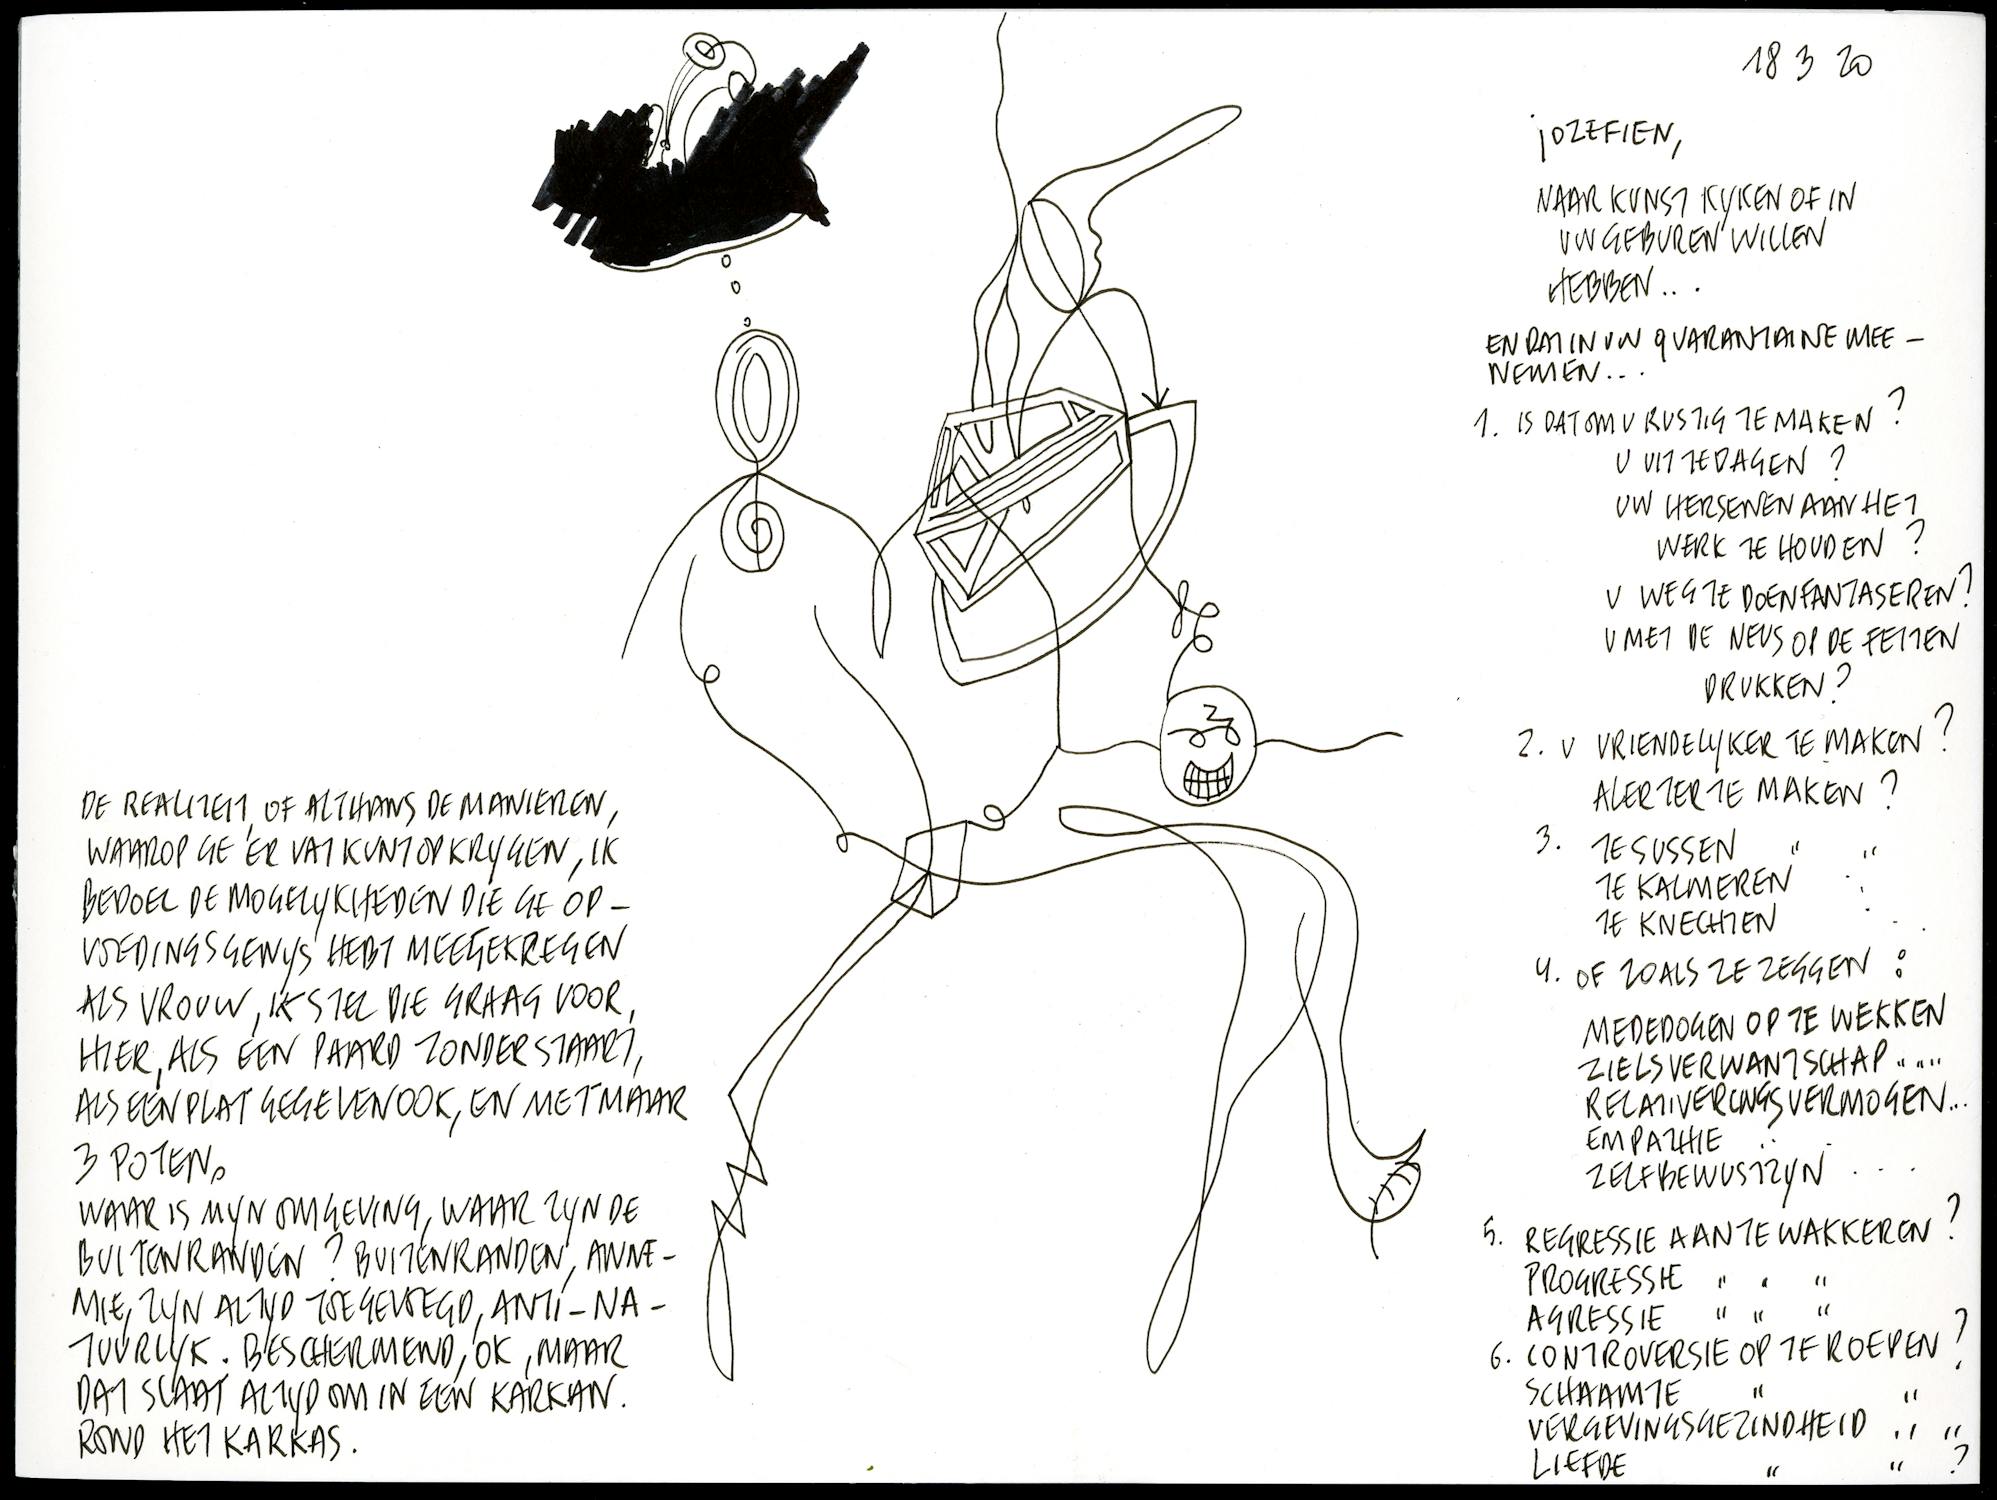 DE REALITEIT, OF ALTHANS DE MANIEREN,
WAAROP GE ER VAT KUNT OP KRYGEN, IK
BEDOEL DE MOGELYKHEDEN DIE GE OP-
VOEDINGSGEWYS HEBT MEEGEKREGEN
ALS VROUW, IK STEL DIE GRAAG VOOR,
HIER, ALS EEN PAARD ZONDER STAART,
ALS EEN PLAT GEGEVEN OOK, EN MET MAAR
3 POTEN.
WAAR IS MYN OMGEVING, WAAR ZYN DE
BUITENRANDEN ? BUITENRANDEN, ANNE-
MIE, ZYN ALTYD TOEGEVOEGD, ANTI-NA-
TUURLYK. BESCHERMEND, OK, MAAR
DAT SLAAT ALTYD OM IN EEN KARKAN.
ROND HET KARKAS.
18 3 20
jOZEFIEN,
NAAR KUNST KYKEN OF IN
UW GEBUREN WILLEN
HEBBEN...
EN DAT IN UW QUARANTAINE MEE-
NEMEN...
1. IS DAT OM U RUSTIG TE MAKEN ?
U UIT TE DAGEN ?
UW HERSENEN AAN HET
WERK TE HOUDEN ?
U WEG TE DOEN FANTASEREN ?
U MET DE NEUS OP DE FEITEN
DRUKKEN ?
2. U VRIENDELYKER TE MAKEN ?
ALERTER TE MAKEN ?
3. TE SUSSEN " "
TE KALMEREN
TE KNECHTEN
4. OF ZOALS ZE ZEGGEN :
MEDEDOGEN OP TE WEKKEN
ZIELSVERWANTSCHAP " " "
RELATIVERINGSVERMOGEN...
EMPATHIE
ZELFBEWUSTZYN ....
5. REGRESSIE AAN TE WAKKEREN ?
PROGRESSIE " " "
AGRESSIE " " "
6. CONTROVERSIE OP TE ROEPEN ?
SCHAAMTE " "
VERGEVINGSGEZINDHEID " "
LIEFDE " " ?